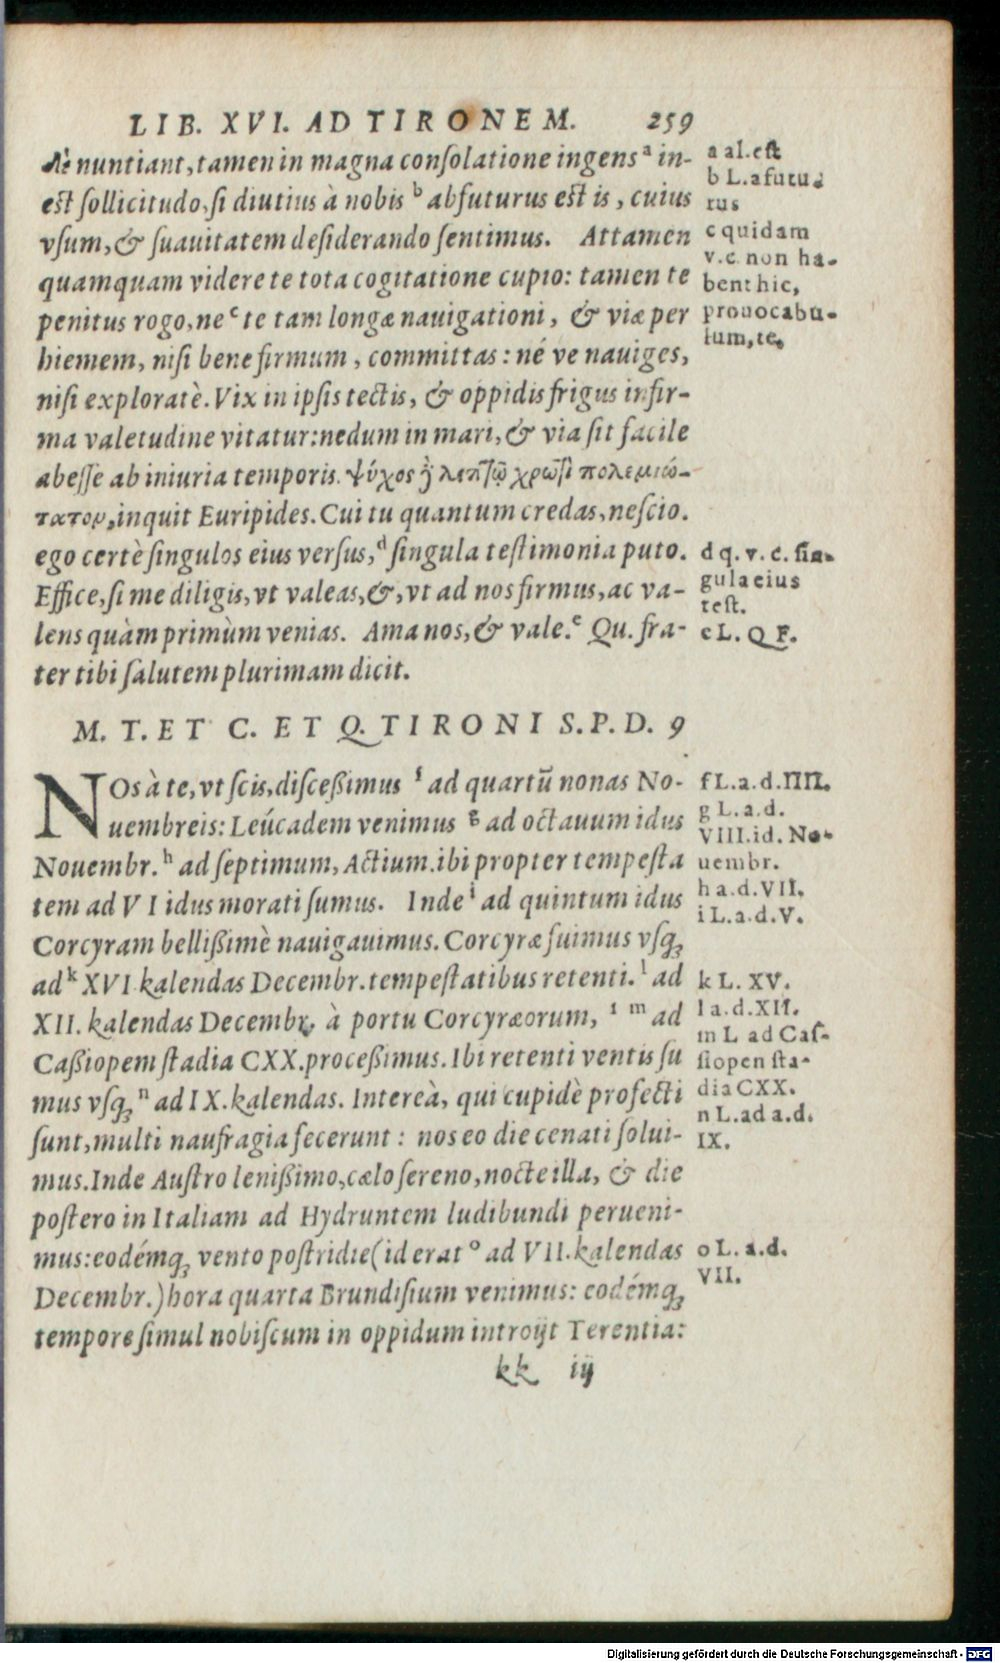 LIB. XVI. AD TIRONEM. 259
nuntiant, tamen in magna consolatione ingens ᵃ in-
est sollicitudo, si diutius à nobis ᵇ abfuturus est is, cuius
vsum, & suauitatem desiderando sentimus. Attamen
quamquam videre te tota cogitatione cupio: tamen te
penitus rogo, ne ᶜ te tam longæ nauigationi, & viæ per
hiemem, nisi bene firmum, committas: né ve nauiges,
nisi exploratè. Vix in ipsis tectis, & oppidis frigus infir-
ma valetudine vitatur: nedum in mari, & via sit facile
abesse ab iniuria temporis. ψύχος λεπτῷ χρωτὶ πολεμιώ-
τατον, inquit Euripides. Cui tu quantum credas, nescio.
ego certè singulos eius versus, ᵈ singula testimonia puto.
Effice, si me diligis, vt valeas, &, vt ad nos firmus, ac va-
lens quàm primùm venias. Ama nos, & vale. ᵉ Qu. fra-
ter tibi salutem plurimam dicit.
a al. est
b L. afutu-
rus
c quidam
v.c. non ha-
bent hic,
prouocabu-
lum, te.
d q. v. c. sin-
gula eius
test.
e L. Q F.
M. T. ET C. ET Q. TIRONI S. P. D. 9
NOs à te, vt scis, discessimus ᶠ ad quartū nonas No-
uembreis: Leúcadem venimus ᵍ ad octauum idus
Nouembr. ʰ ad septimum, Actium. ibi propter tempesta
tem ad VI idus morati sumus. Inde ⁱ ad quintum idus
Corcyram bellissimè nauigauimus. Corcyræ fuimus vsq;
ad ᵏ XVI kalendas Decembr. tempestatibus retenti. ˡ ad
XII. kalendas Decembr. à portu Corcyræorum, ¹ ᵐ ad
Cassiopem stadia CXX. processimus. Ibi retenti ventis su
mus vsq; ⁿ ad IX. kalendas. Intereà, qui cupidè profecti
sunt, multi naufragia fecerunt: nos eo die cenati solui-
mus. Inde Austro lenissimo, cælo sereno, nocte illa, & die
postero in Italiam ad Hydruntem ludibundi perueni-
mus: eodémq; vento postridie (id erat ᵒ ad VII. kalendas
Decembr.) hora quarta Brundisium venimus: eodémq;
tempore simul nobiscum in oppidum introijt Terentia:
f L. a. d. IIII.
g L. a. d.
VIII. id. No-
uembr.
h a. d. VII.
i L. a. d. V.
k L. XV.
l a. d. XII.
m L ad Cas-
siopen sta-
dia CXX.
n L. ad a. d.
IX.
o L. a. d.
VII.
kk iij
Digitalisierung gefördert durch die Deutsche Forschungsgemeinschaft - DFG